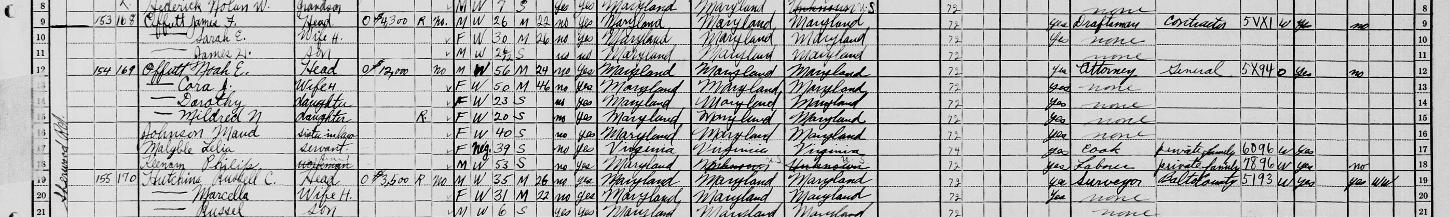 8 Frederick Nolan W. grandson M W 7 S yes Maryland Maryland U.S none 8
9 153 168 Offutt James F. Head O $4,300 R no M W 26 M 22 no yes Maryland Maryland Maryland 72 yes Draftsman Contractor 5VX1 W yes no 9
10 — Sarah E. Wife H. F W 30 M 26 no yes Maryland Maryland Maryland 72 yes none 10
11 — James Son M W S no no Maryland Maryland Maryland 72 none 11
12 154 169 Offutt Noah E. Head O $12,000 no M W 56 M 24 no yes Maryland Maryland Maryland 72 yes Attorney General 5X94 O yes no 12
13 — Cora Wife H F W 50 M no yes Maryland Maryland Maryland 72 yes none 13
14 — Dorothy daughter F W 23 S no yes Maryland Maryland Maryland 72 yes none 14
— Mildred N daughter R F W 20 S no yes Maryland Maryland Maryland 72 yes none 15
16 Johnson Maud sister in law F W 40 S no yes Maryland Maryland Maryland 72 yes none 16
Lelia servant F Neg 39 S no yes Virginia Virginia Virginia 74 yes Cook private family 6096 W yes 17
Philip M W 53 S no yes Maryland Unknown 72 yes Laborer private family 7896 W yes no 18
19 155 170 Hutchins Russell C. Head O $3,500 R No M W 35 M 26 no yes Maryland Maryland Maryland 72 yes Surveyor Balto County 5193 W yes yes WW 19
20 — Marcella Wife H F W 31 M 22 no yes Maryland Maryland Maryland 72 yes none 20
21 — Russel Son M W 6 S yes Maryland Maryland Maryland none 21